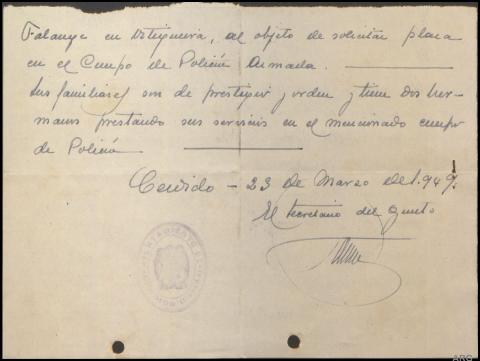 Falange en Ortigueira, al objeto de solicitar plaza
en el Cuerpo de Policía Armada.
Sus familiares son de prestigio y orden y tiene dos her-
manos prestando sus servicios en el mencionado cuerpo
de Policía.
Cervido - 23 de Marzo de 1.949.
El Secretario del
ABC